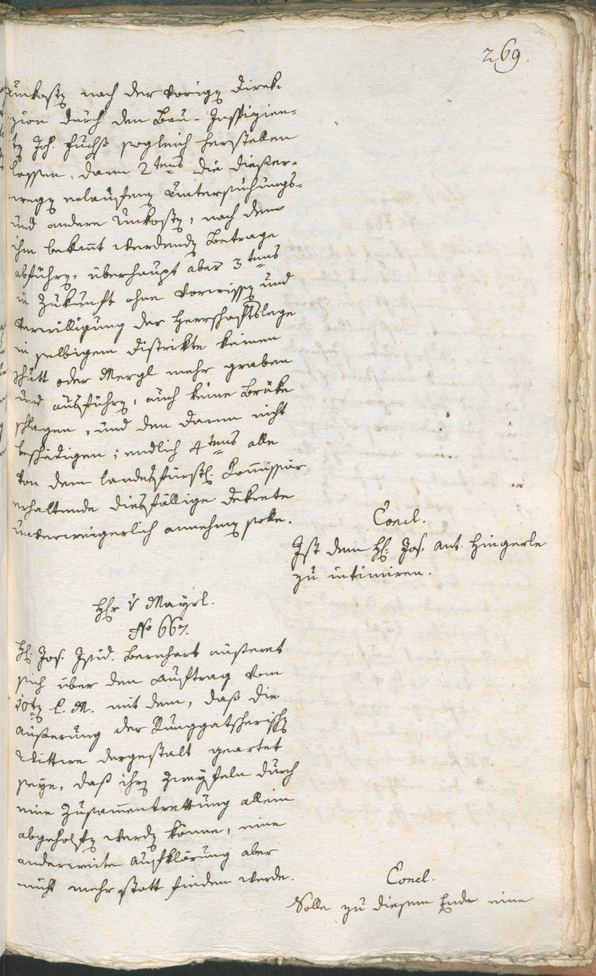 269.
Unkosten nach der vorigen Direk-
zion durch den Bau-Inspizien-
ten Joh. Fuchß sogleich herstellen
lassen, dann 2tens die dießer-
wegen erlaufenen Untersuchungs-
und andere Unkosten, nach dem
ihm bekannt werdenden Betrage
abführen, überhaupt aber 3tens
in Zukunft ohne Vorwissen und
Verwilligung der Herrschaftslege
in selbigem Distrikte keinen
Schutt oder Mergl mehr graben
und ausführen, auch keine Brüke
schlagen, und den Damm nicht
beschädigen; endlich 4tens alle
von dem landesfürstl. Commissär
erhaltende dießfällige Dekrete
unverweigerlich annehmen solle.
Concl.
Ist dem H: Jos. Ant. Hingerle
zu intimiren.
Hr v Mayrl.
No 667.
H: Jos. Isid. Bernhart äußeret
sich über den Auftrag vom
10ten l. M. mit dem, daß die
Äußerung der Runggatscherischen
Wittwe dergestalt geartet
seye, daß ihren Zweifeln durch
eine Zusammentrettung allein
abgeholfen werden könne, eine
anderweite Aufklärung aber
nicht mehr statt finden werde.
Concl.
Solle zu diesem Ende eine